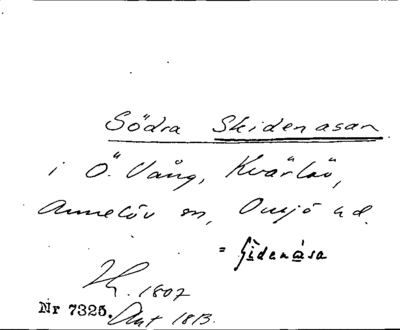 Södra Skidenasan
i Ö. Vång, Kvärlöv,
Annelöv sn, Onsjö hd.
= sìdenàsa
1807
Nr 7325. Akt 1813.